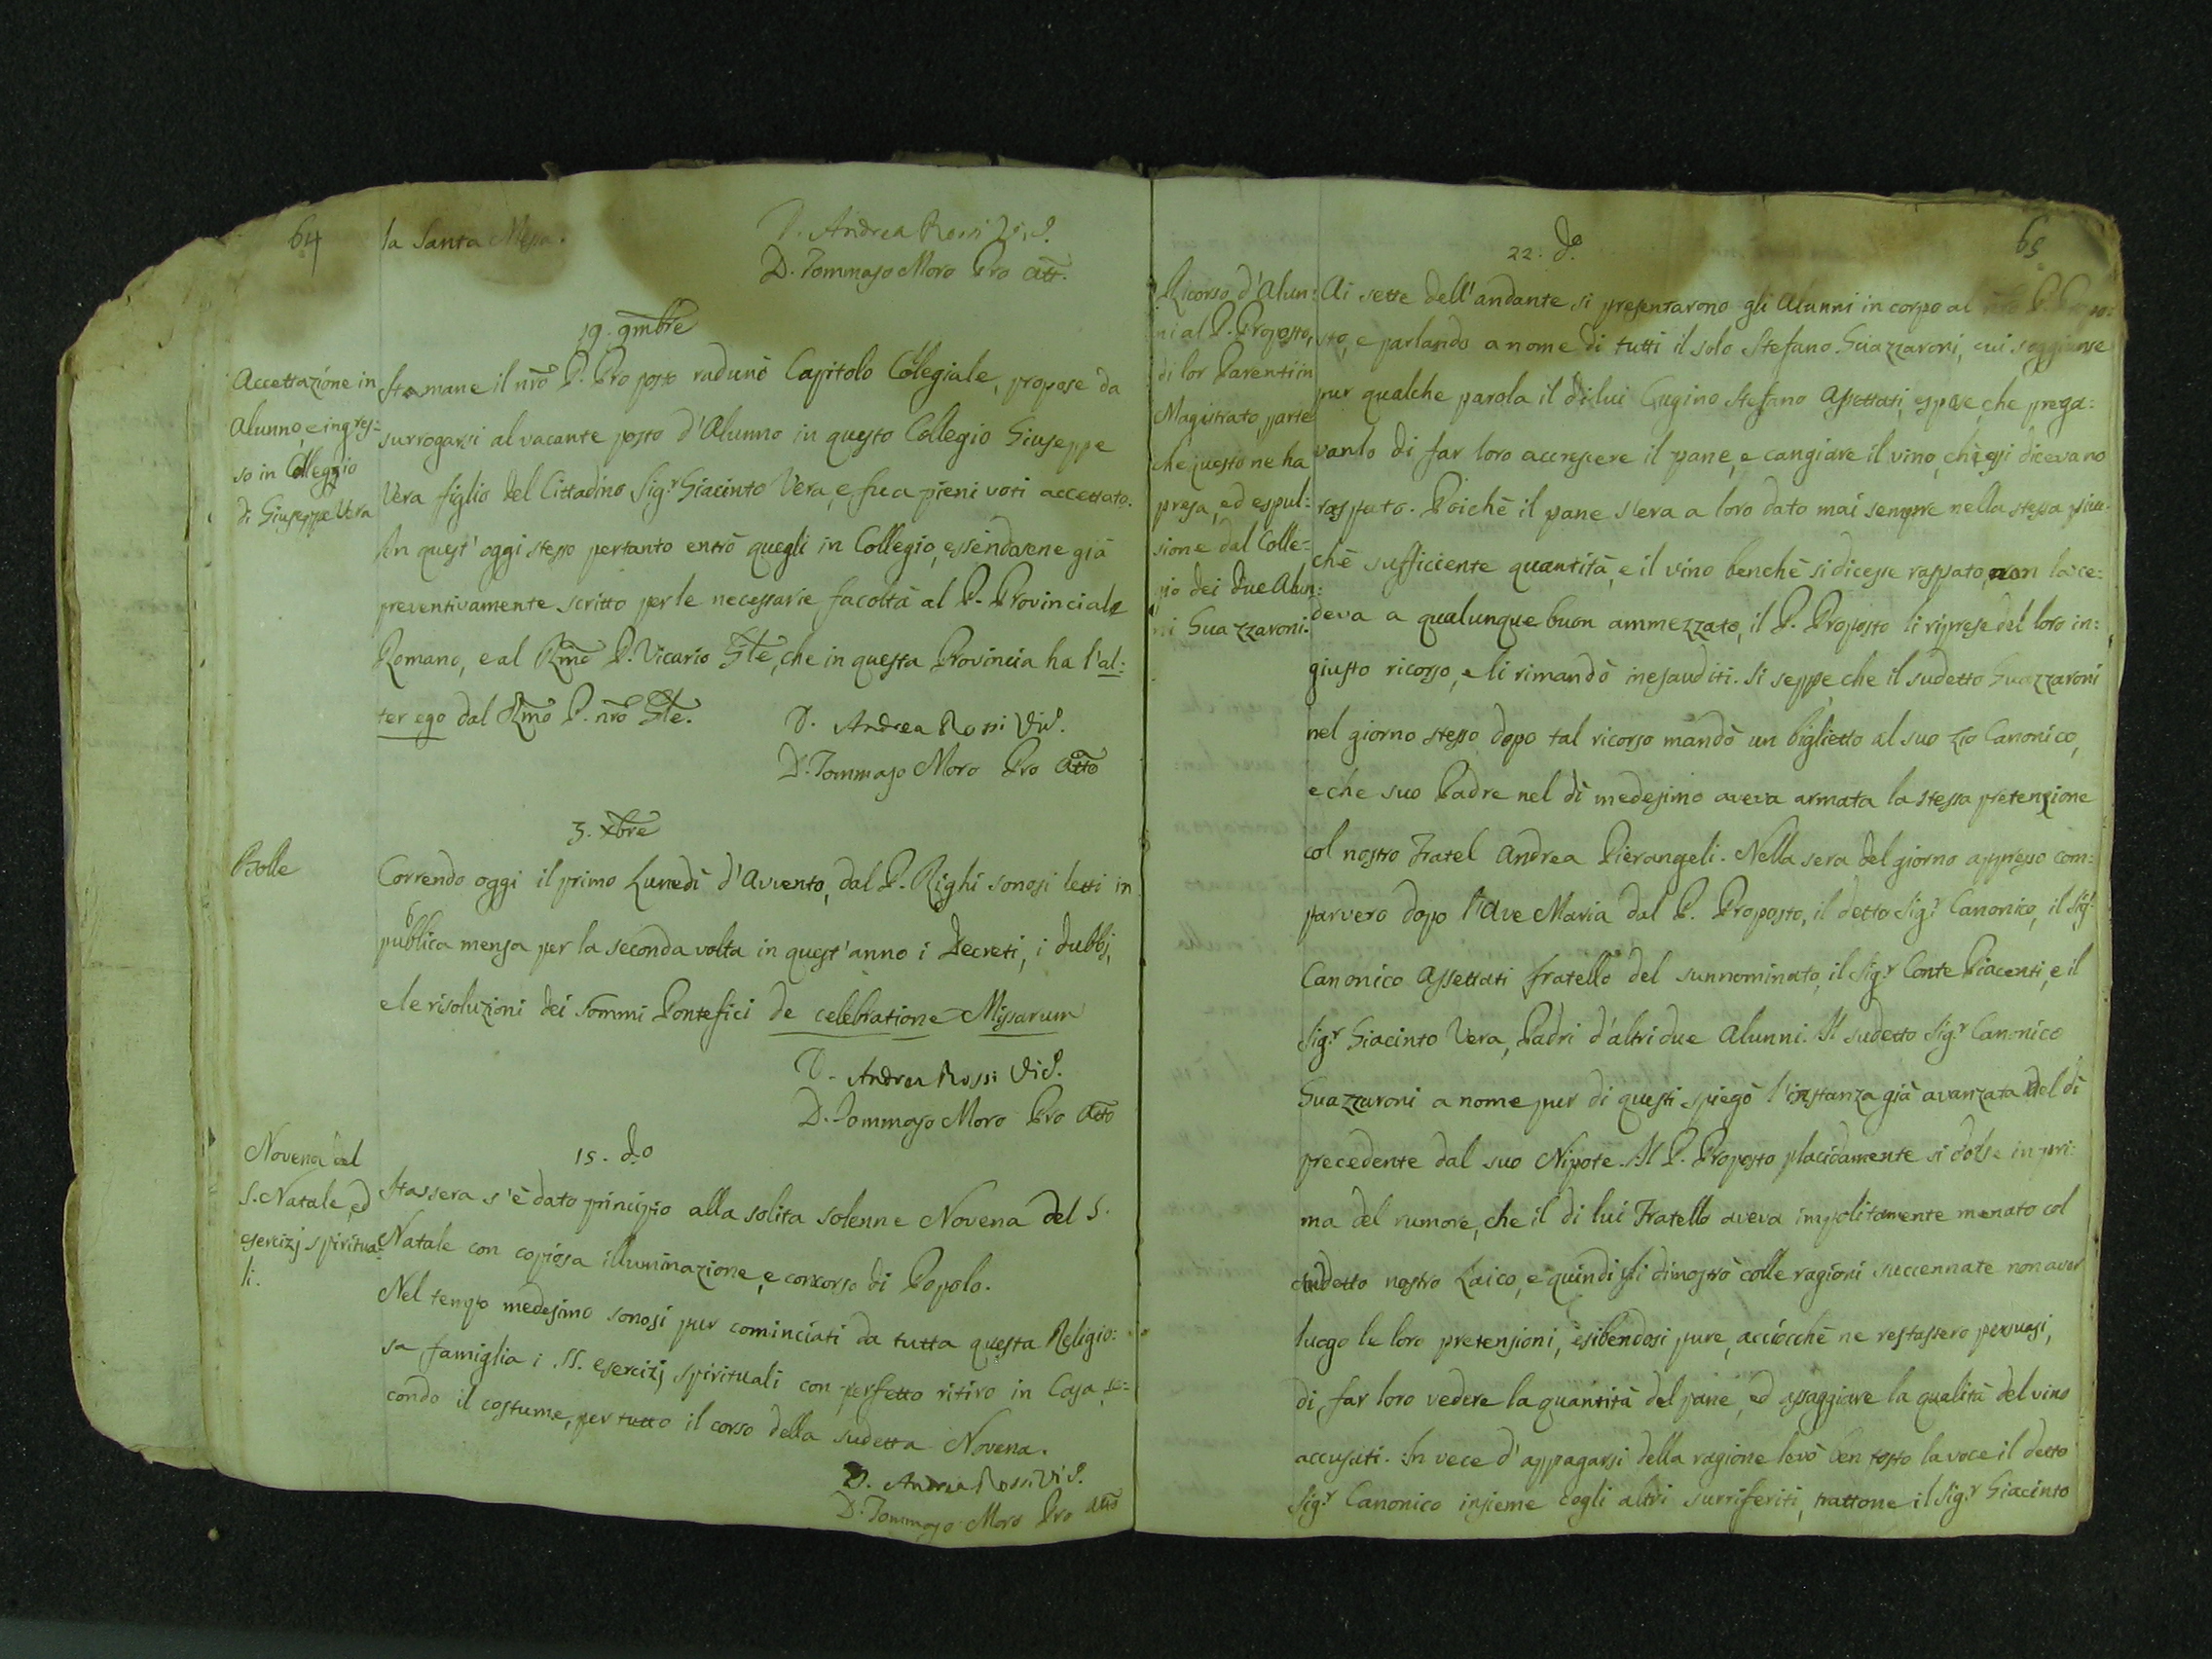 64
la Santa Messa.
D. Andrea Rossi Vic.
D. Tommaso Moro Pro Att.
19. 9mbre
Accettazione in
Alunno, e ingres:
so in Colleggio
di Giuseppe Vera
Stamane il nro P. Proposto radunò Capitolo Collegiale, propose da
surrogarsi al vacante posto d'Alunno in questo Collegio Giuseppe
Vera figlio del Cittadino Sig.r Giacinto Vera, e fu a pieni voti accettato.
In quest'oggi stesso pertanto entrò quegli in Collegio, essendosene già
preventivamente scritto per le necessarie facoltà al P. Provinciale
Romano, e al Rmo P. Vicario Gle, che in questa Provincia ha l'al:
ter ego dal Rmo P. nro Gle.
D. Andrea Rossi Vic.
D. Tommaso Moro Pro Atto
3. Xbre
Bolle
Correndo oggi il primo Lunedì d'Avvento, dal P. Righi sonosi letti in
pubblica mensa per la seconda volta in quest'anno i Decreti, i dubbj,
e le risoluzioni dei Sommi Pontefici de celebratione Missarum
D. Andrea Rossi Vic.
D. Tommaso Moro Pro Atto
15. do
Novena del
S. Natale, ed
esercizj spiritua:
li.
Stassera s'è dato principio alla solita solenne Novena del S.
Natale con copiosa illuminazione, e concorso di Popolo.
Nel tempo medesimo sonosi pur cominciati da tutta questa Religio:
sa famiglia i SS. esercizj spirituali con perfetto ritiro in Casa, se:
condo il costume, per tutto il corso della sudetta Novena.
D. Andrea Rossi Vic.
D. Tommaso Moro Pro Atto
65
22. do
Ricorso d'Alun:
ni al P. Proposto,
di lor Parenti in
Magistrato, parte
che questo ne ha
presa, ed espul:
sione dal Colle:
gio dei due Alun:
ni Guazzaroni.
Ai sette dell'andante si presentarono gli Alunni in corpo al nro P. Propo:
sto, e parlando a nome di tutti il solo Stefano Guazzaroni, cui soggiunse
pur qualche parola il di lui Cugino Stefano Assettati, espose, che prega:
vanlo di far loro accrescere il pane, e cangiare il vino, ch'essi dicevano
raspato. Poichè il pane s'era a loro dato mai sempre nella stessa più
chè sufficiente quantità, e il vino benchè si dicesse raspato, non la ce:
deva a qualunque buon ammezzato, il P. Proposto li riprese del loro in:
giusto ricorso, e li rimandò inesauditi. Si seppe che il sudetto Guazzaroni
nel giorno stesso dopo tal ricorso mandò un biglietto al suo zio Canonico,
e che suo Padre nel dì medesimo aveva armata la stessa pretenzione
col nostro Fratel Andrea Pierangeli. Nella sera del giorno appresso com:
parvero dopo l'Ave Maria dal P. Proposto, il detto Sig.r Canonico, il Sig.r
Canonico Assettati fratello del sunnominato, il Sig.r Conte Piacenti, e il
Sig.r Giacinto Vera, Padri d'altri due Alunni. Il sudetto Sig.r Canonico
Guazzaroni a nome pur di questi spiegò l'instanza già avanzata nel dì
precedente dal suo Nipote. Il P. Proposto placidamente si dolse in pri:
ma del rumore, che il di lui Fratello aveva impolitamente menato col
sudetto nostro Laico, e quindi gli dimostrò colle ragioni succennate non aver
luogo le loro pretensioni, esibendosi pure, acciocchè ne restassero persuasi,
di far loro vedere la quantità del pane, ed assaggiare la qualità del vino
accusati. In vece d'appagarsi della ragione levò ben tosto la voce il detto
Sig.r Canonico insieme cogli altri surriferiti, trattone il Sig.r Giacinto